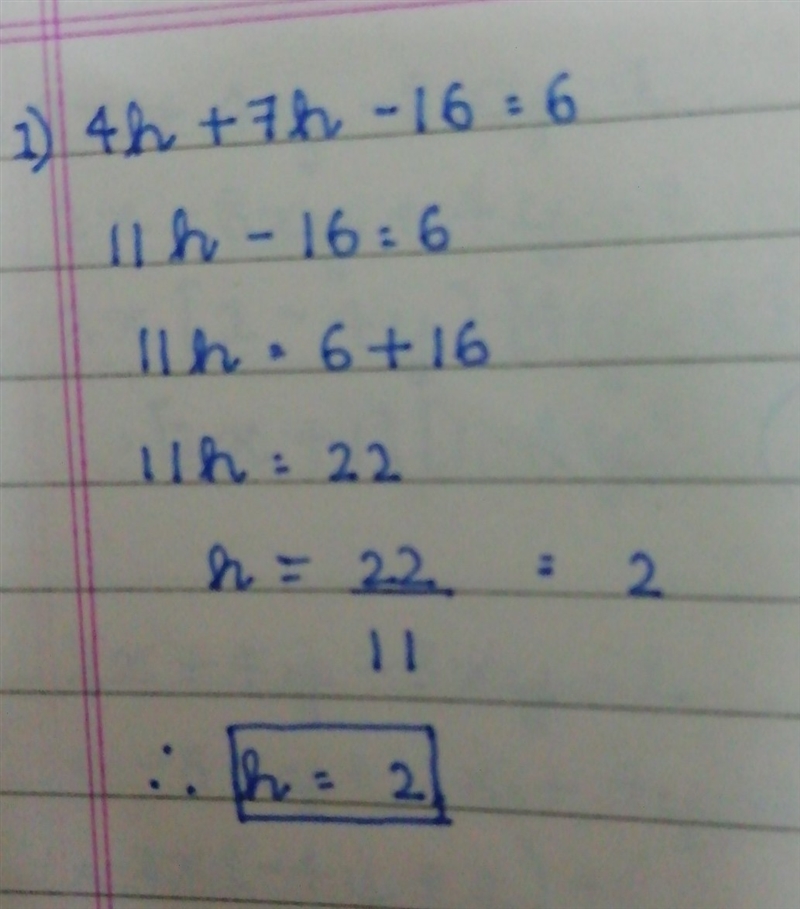 1) 4h + 7h - 16 = 6
11h - 16 = 6
11h = 6 + 16
11h = 22
h = 22/11 = 2
∴ h = 2